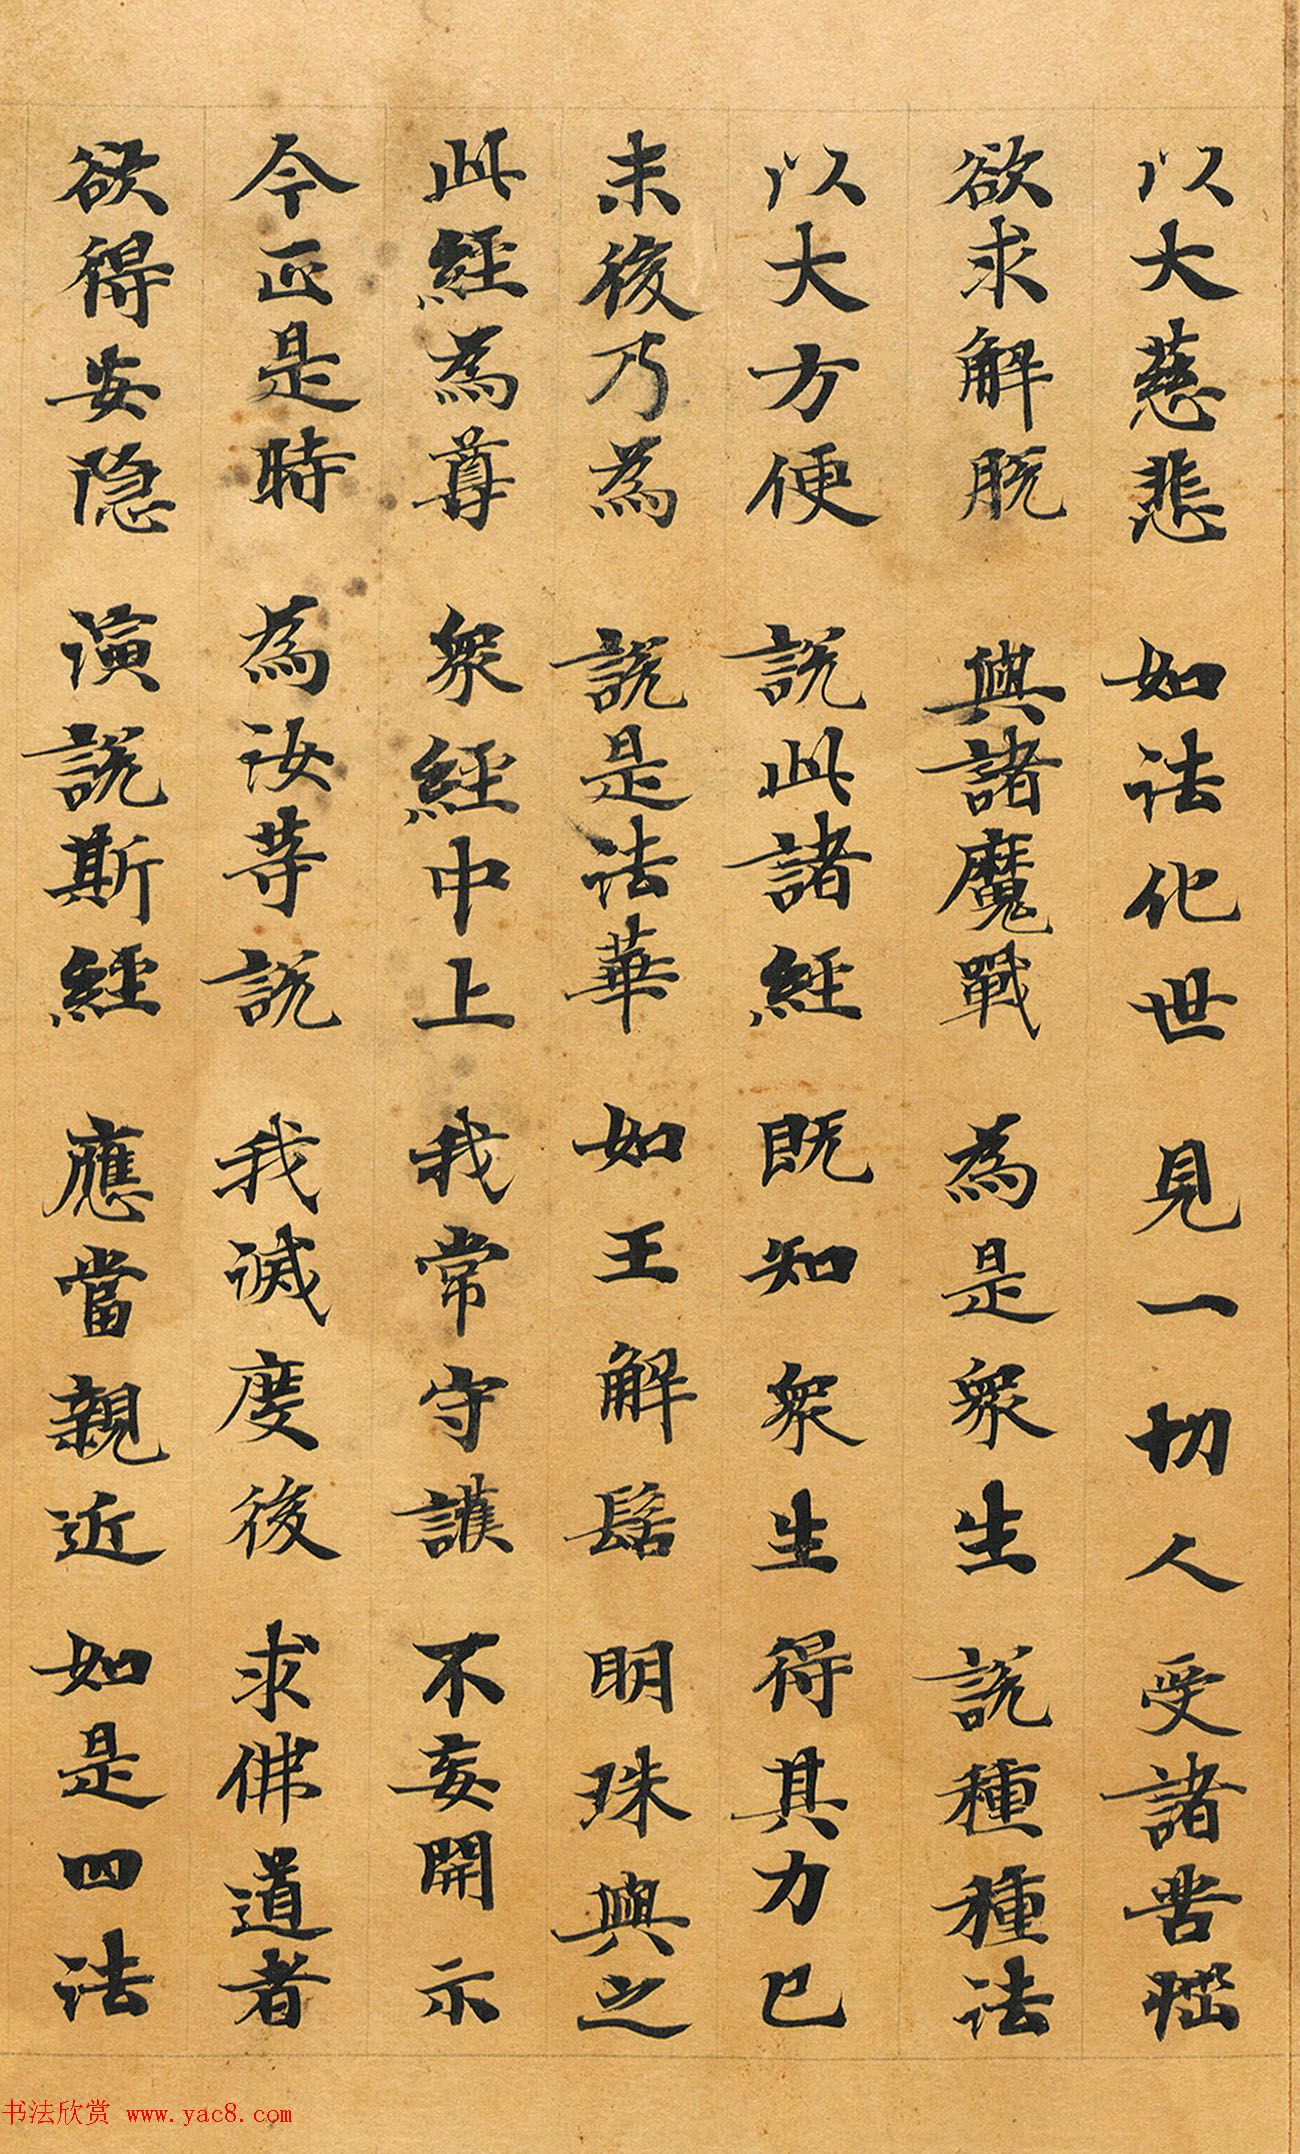 以大慈悲 如法化世 見一切人 受諸苦惱
欲求解脫 與諸魔戰 為是眾生 說種種法
以大方便 說此諸經 既知眾生 得其力已
末後乃為 說是法華 如王解髻 明珠與之
此經為尊 眾經中上 我常守護 不妄開示
今正是時 為汝等說 我滅度後 求佛道者
欲得安隱 演說斯經 應當親近 如是四法
书法欣赏 www.yac8.com